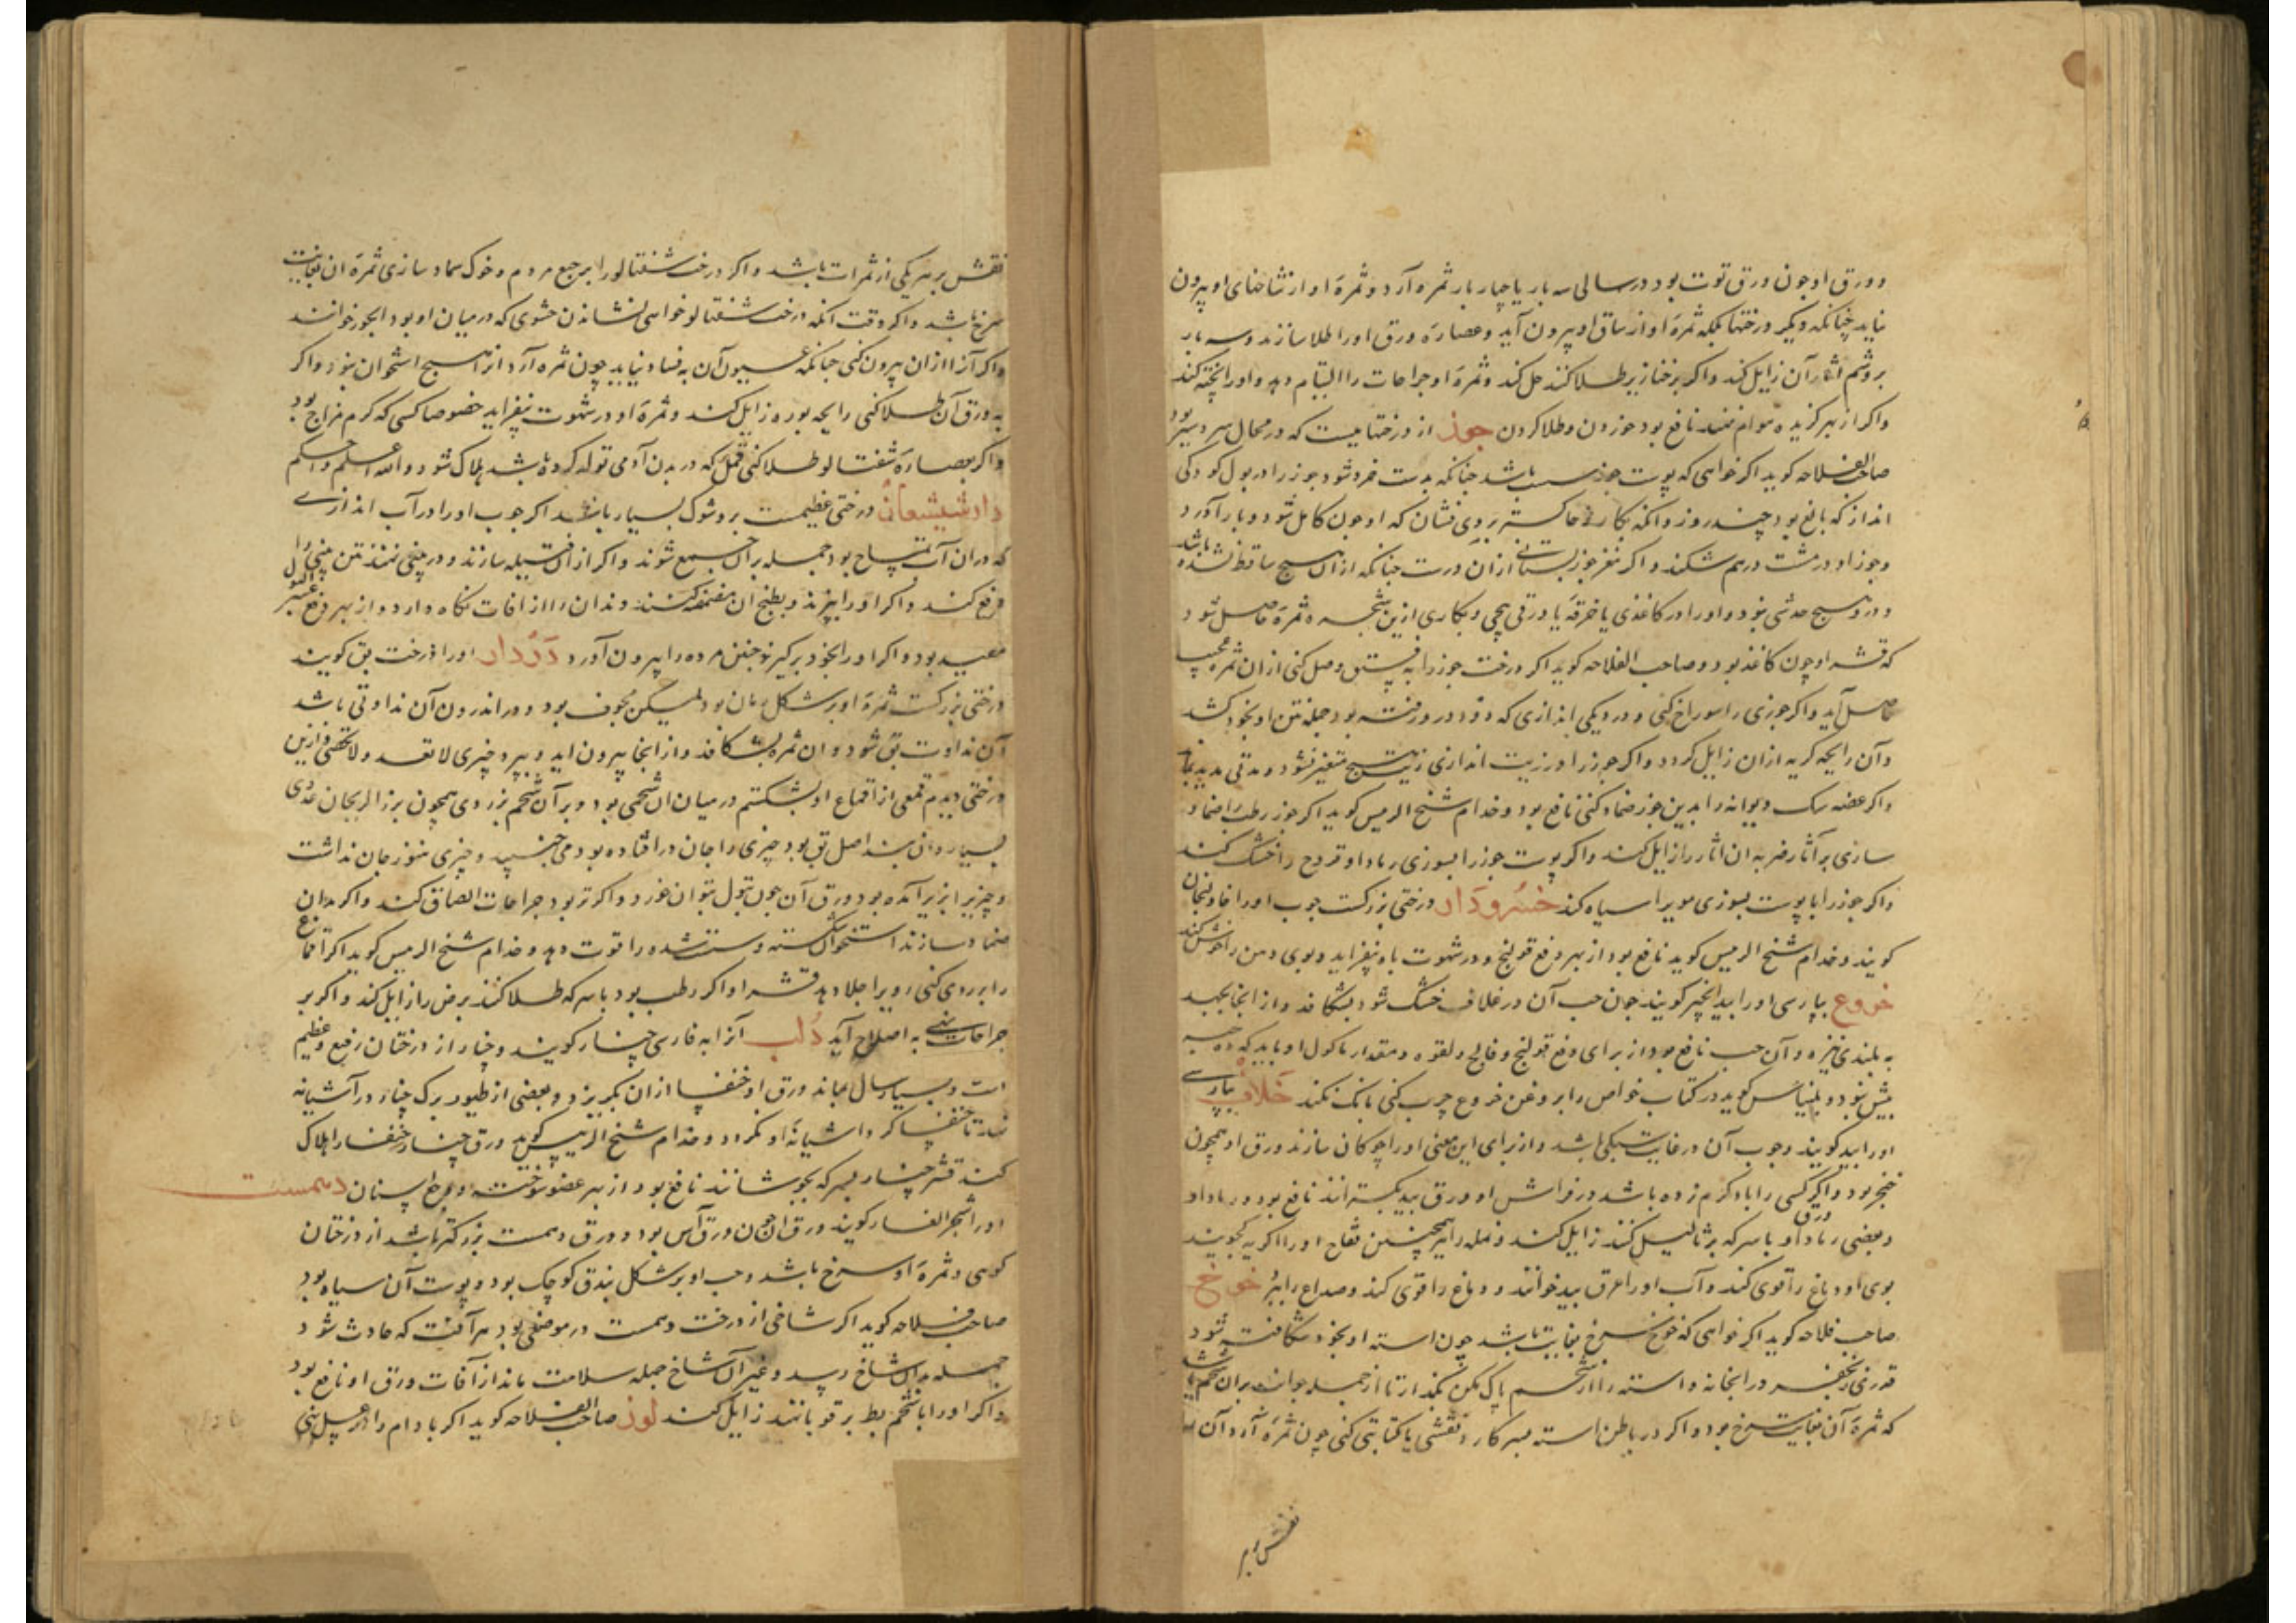 و ورق او چون ورق توت بود در سالی سه بار یا چهار بار ثمره آرد و ثمرهٔ او از شاخهای او بیرون
نیاید چنانکه دیگر درختها بلکه ثمرهٔ او از ساق او بیرون آید و عصارهٔ ورق او را طلا سازند و سه بار
بر وشم آثار آن زایل کند و اگر بر خنازیر طلا کنند حل کند و ثمرهٔ او جراحات را التیام دهد و او را پخته کند
و اگر از بهر گزیده هوام نهند نافع بود خوردن و طلا کردن جوز از درختهاییست که در محال سردسیر بود
صاحب الفلاحه گوید اگر خواهی که پوست جوز باشد چنانکه بدست خرد شود جوز را در بول کودکی
انداز که بالغ بود چند روز وانگه بکار و خاکستر بر وی فشان که او چون کامل شود و بار آورد
و جوز او در مشت درهم شکند و اگر مغز جوز بستانی از آن درست چنانکه از آن هیچ ساقط نشده باشد
و درو هیچ خدشی نبود و او را در کاغذی یا خرقهٔ یا ورقی پیچی و بکاری ازین شجره ثمرهٔ حاصل شود
که قشر او چون کاغذ بود و صاحب الفلاحه گوید اگر درخت جوز را به فستق وصل کنی از آن ثمره عجیب
حاصل آید و اگر جوزی را سوراخ کنی و در دیگی اندازی که دود در رفته بود جمله نتن او بخود کشد
و آن رایحه کریه از آن زایل گردد و اگر جوز را در زیت اندازی زیت هیچ متغیر نشود و مدتی مدید بماند
و اگر عضه سک دیوانه را بدین جوز ضماد کنی نافع بود و خدام شیخ الرییس گوید اگر جوز رطب را ضماد
سازی بر آثار ضربه آن اثار را زایل کند و اگر پوست جوز را بسوزی رماد او قروح را خشک کند
و اگر جوز را با پوست بسوزی موی را سیاه کند خسرودار درختی بزرگست چوب او را خاولنجان
گویند و خدام شیخ الرییس گوید نافع بود از بهر دفع قولنج و در شهوت باه بیفزاید و بوی دهن را خوش کند
خروع بپارسی او را بید انجیر گویند چون حب آن در غلاف خشک شود بشکافد و از آنجا بجهد
به بلندی نیزه و آن حب نافع بود از برای دفع قولنج و فالج و لقوه و مقدار ماکول او باید که ده حبه
بیش نبود و بلنیاس گوید در کتاب خواص را بروغن خروع چرب کنی بانک نکند خلاف بپارسی
او را بید گویند و چوب آن در غایت سبکی باشد و از برای این معنی او را چوکان سازند و ورق او همچون
خنجر بود و اگر کسی را باد گرم زده باشد در فراش او ورق بید بگسترانند نافع بود و رماد او
و بعضی رماد ورق او با سرکه بر ثالیل کنند زایل کند و نمله را نیز همچنین فقاح او را اگر ببویند
بوی او دماغ را قوی کند و آب او را عرق بید خوانند و دماغ را قوی کند و صداع را ببرد خوخ
صاحب فلاحه گوید اگر خواهی که خوخ سرخ بغایت باشد چون استه او بخود شکافته شود
قدری زنجفر در آنجا نه و استه را از شحم پاک مکن بگذار تا از جمله جوانب بران شحم باشد
که ثمرهٔ آن بغایت سرخ بود و اگر در باطن استه بسر کارد نقشی یا کتابتی کنی چون ثمرهٔ آرد آن
نقش بر
نقش بر هر یکی از ثمرات باشد و اگر درخت شفتالو را برجیع مردم و خوک سماد سازی ثمره آن بغایت
سرخ باشد و اگر وقت آنکه درخت شفتالو خواهی نشاندن حشوی که در میان او بود آنجور خوانند
و اگر آنرا از آن بیرون کنی چنانکه عیون آن به فساد نیاید چون ثمره آرد از آن هیچ استخوان نبود و اگر
به ورق آن طلا کنی رایحه بوره زایل کند و ثمرهٔ او در شهوت بیفزاید خصوصا کسی که گرم مزاج بود
و اگر بعصارهٔ شفتالو طلا کنی قمل که در بدن آدمی تولد کرده باشد هلاک شود والله اعلم و احکم
دارشیشعان درختی عظیمست برو شوک بسیار باشد اگر چوب او را در آب اندازی
که در آن آب تمساح بود جمله بر آن جمع شوند و اگر از آن فتیله سازند و در بینی نهند نتن بینی را
دفع کند و اگر او را بپزند و بطبخ آن مضمضه کنند دندان را از آفات نگاه دارد و از بهر دفع عسر البول
مفید بود و اگر او را بخود برگیرند جنین مرده را بیرون آورد دردار او را درخت بق گویند
درختی بزرگست ثمرهٔ او بر شکل رمان بود لیکن مجوف بود و در اندرون آن نداوتی باشد
آن نداوت بق شود و آن ثمره بشکافد و از آنجا بیرون آید و بپرد چیزی لا تعد و لا تحصی و ازین
درختی دیدم قمعی از اقماع او بشکستم در میان آن شحمی بود و بر آن شحم بزر وی همچون بزر الریحان عددی
بسیار و آن بند اصل بق بود چیزی را جان در افتاده بود می جنبید و چیزی هنوز جان نداشت
و چیز پر بزیر آمده بود و ورق آن چون بقول بتوان خورد و اگر تر بود جراحات الصاق کند و اگر بدان
ضماد سازند استخوان شکسته و سست شده را قوت دهد و خدام شیخ الرییس گوید اگر اقماع
را بر روی کنی روی را جلا دهد قشر او اگر رطب بود با سرکه طلا کنند برص را زایل کند و اگر بر
جراحات نهی به اصلاح آید دلب آنرا به فارسی چنار گویند و چنار از درختان رفیع و عظیم
است و بسیار سال بماند ورق او خنفسا از آن بگریزد و بعضی از طیور برک چنار در آشیانه
نهند تا خنفسا گرد آشیانهٔ او نگردد و خدام شیخ الرییس گوید ورق چنار خنفسا را هلاک
کند قشر چنار بسرکه بجوشانند نافع بود از بهر عضو سوخته و وجع اسنان دهمست
او را شجر الغار گویند ورق آن چون ورق آس بود و ورق دهمست بزرگتر باشد از درختان
کوهی و ثمرهٔ او سرخ باشد و حب او بر شکل بندق کوچک بود و پوست آن سیاه بود
صاحب فلاحه گوید اگر شاخی از درخت دهمست در موضعی بود هر آفت که حادث شود
جمله بدان شاخ رسد و غیر آن شاخ جمله سلامت ماند از آفات ورق او نافع بود
و اگر او را با شحم بط بر قوبا نهند زایل کند لوز صاحب الفلاحه گوید اگر بادام را در عسل نهی